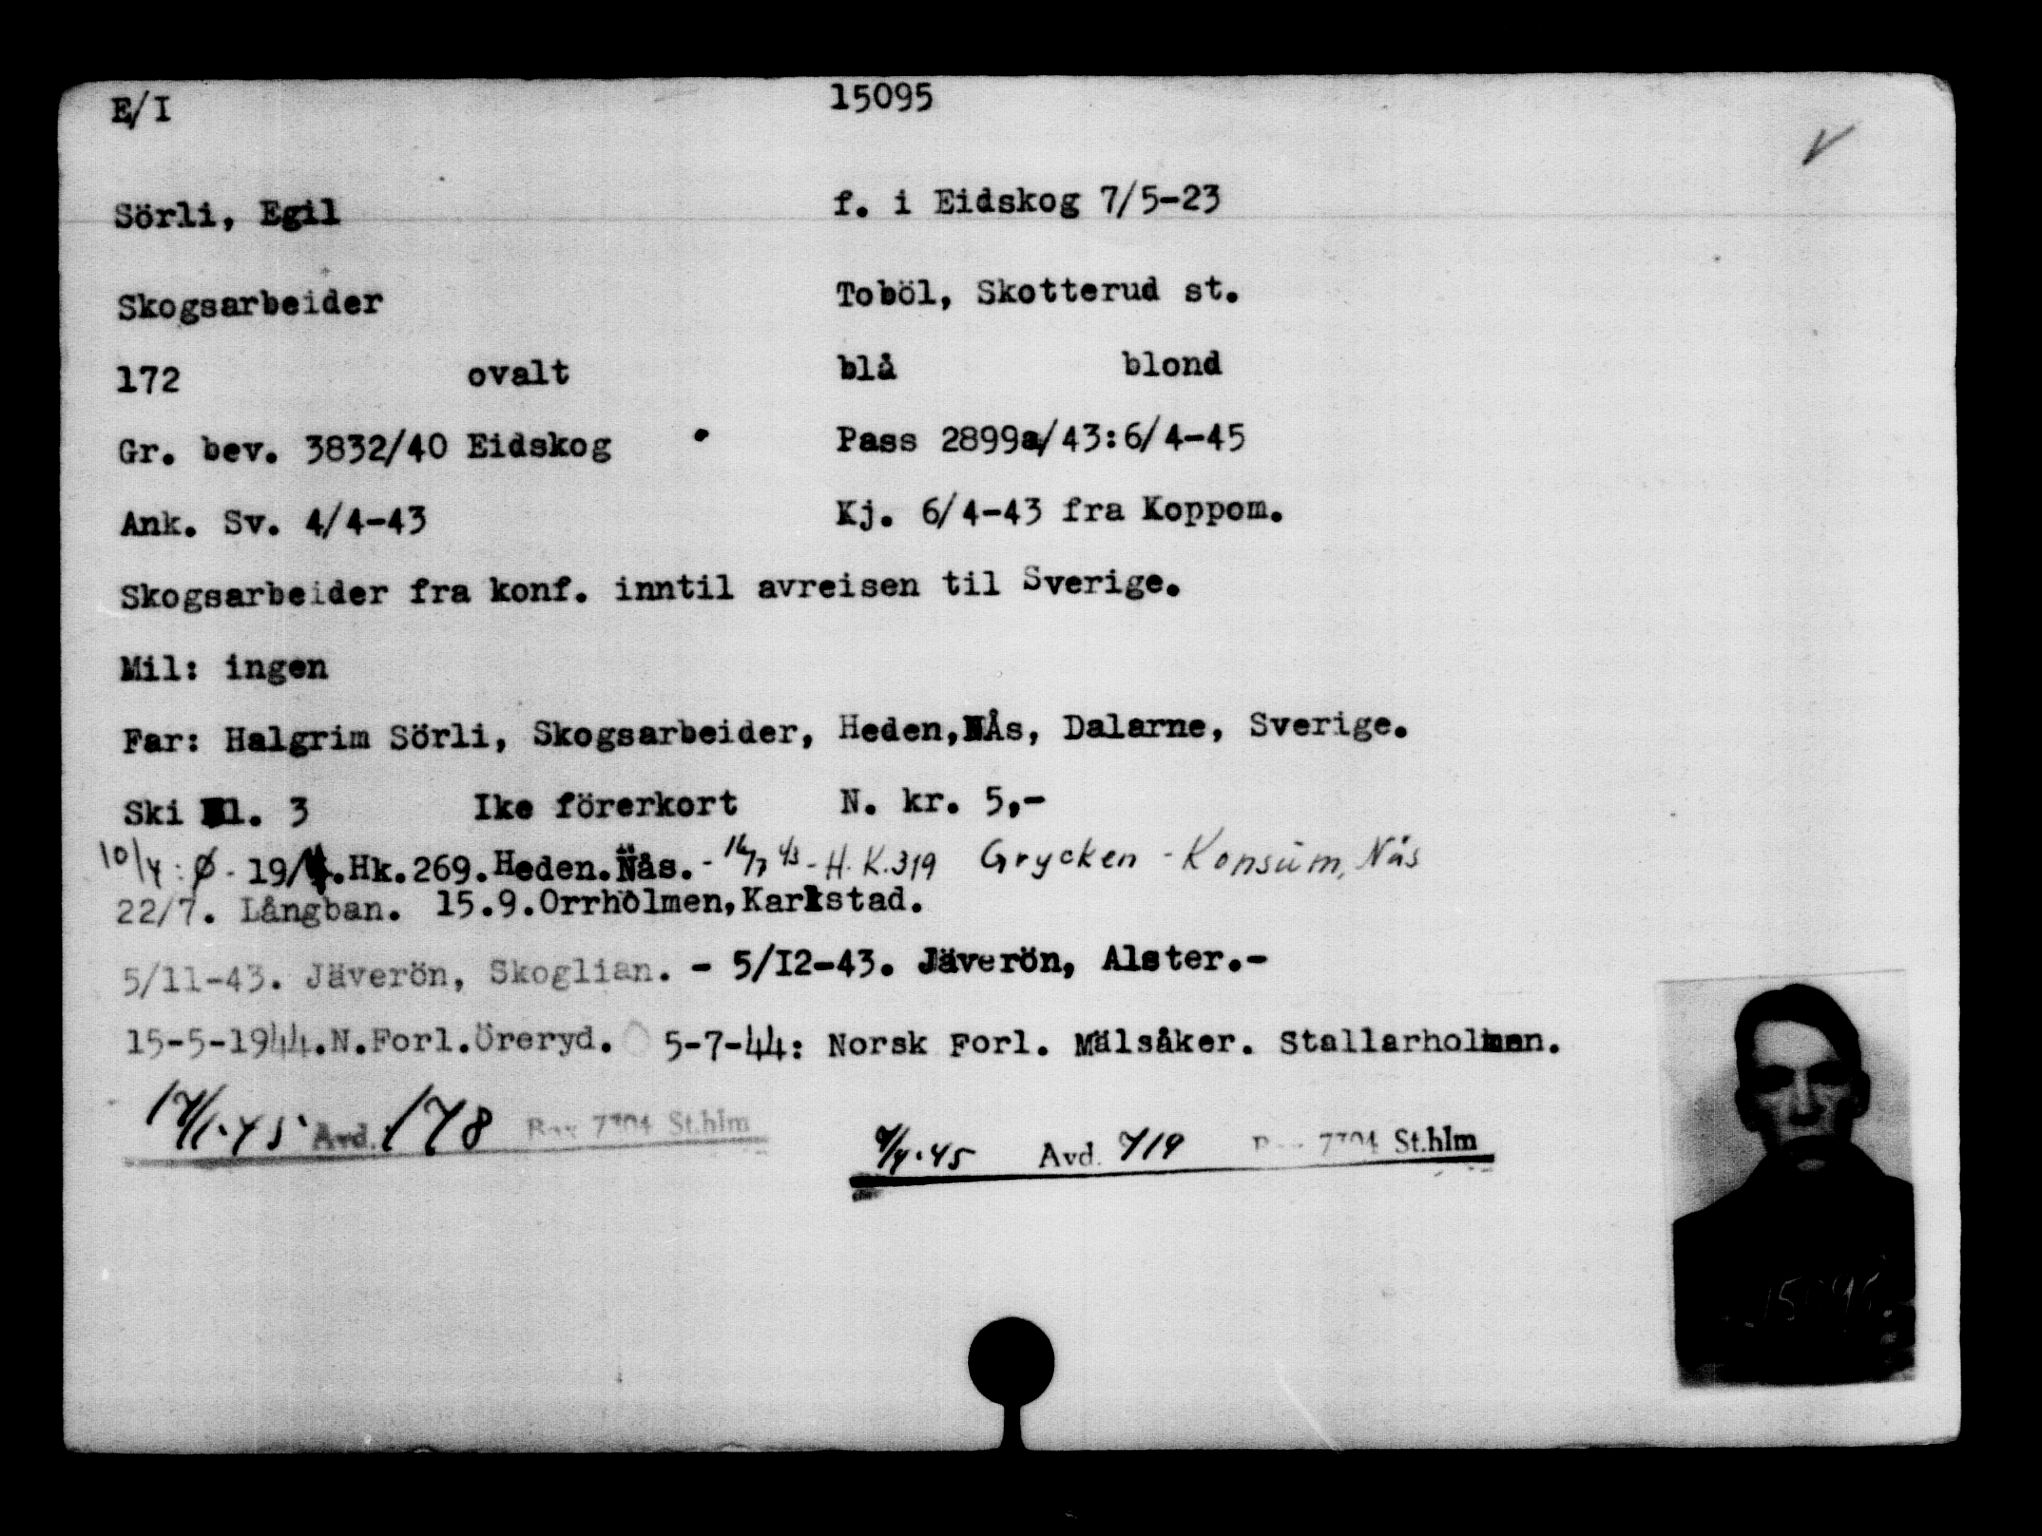 E/I 15095
Sörli, Egil f. i Eidskog 7/5-23
Skogsarbeider Toböl, Skotterud st.
172 ovalt blå blond
Gr. bev. 3832/40 Eidskog Pass 2899a/43:6/4-45
Ank. Sv. 4/4-43 Kj. 6/4-43 fra Koppom.
Skogsarbeider fra konf. inntil avreisen til Sverige.
Mil: ingen
Far: Halgrim Sörli, Skogsarbeider, Heden, NÅs, Dalarne, Sverige.
Ski l. 3 Ike förerkort N. kr. 5,-
10/4: Ø - 19/4.Hk.269.Heden.Nås. - 16/7 43 - H.K.319 Grycken - Konsum, Nås
22/7. Långban. 15.9.Orrholmen,Karlstad.
5/11-43. Jäverön, Skoglian. - 5/I2-43. Jäverön, Alster.-
15-5-1944.N.Forl.Öreryd. 5-7-44: Norsk Forl. Mälsåker. Stallarholmen.
Avd. 178 Box 7704 St.hlm
9/4.45 Avd. 719 7704 St.hlm